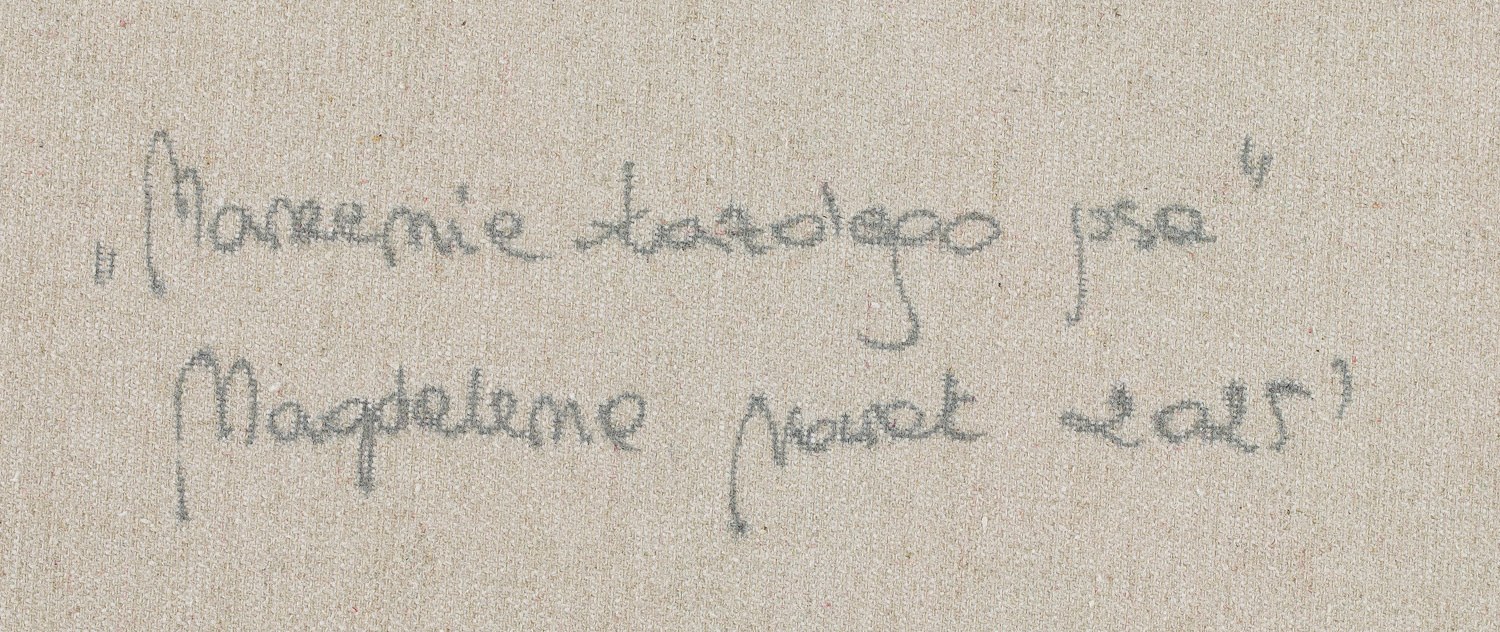 „Marzenie każdego psa"
Magdalena Nowak 2025'